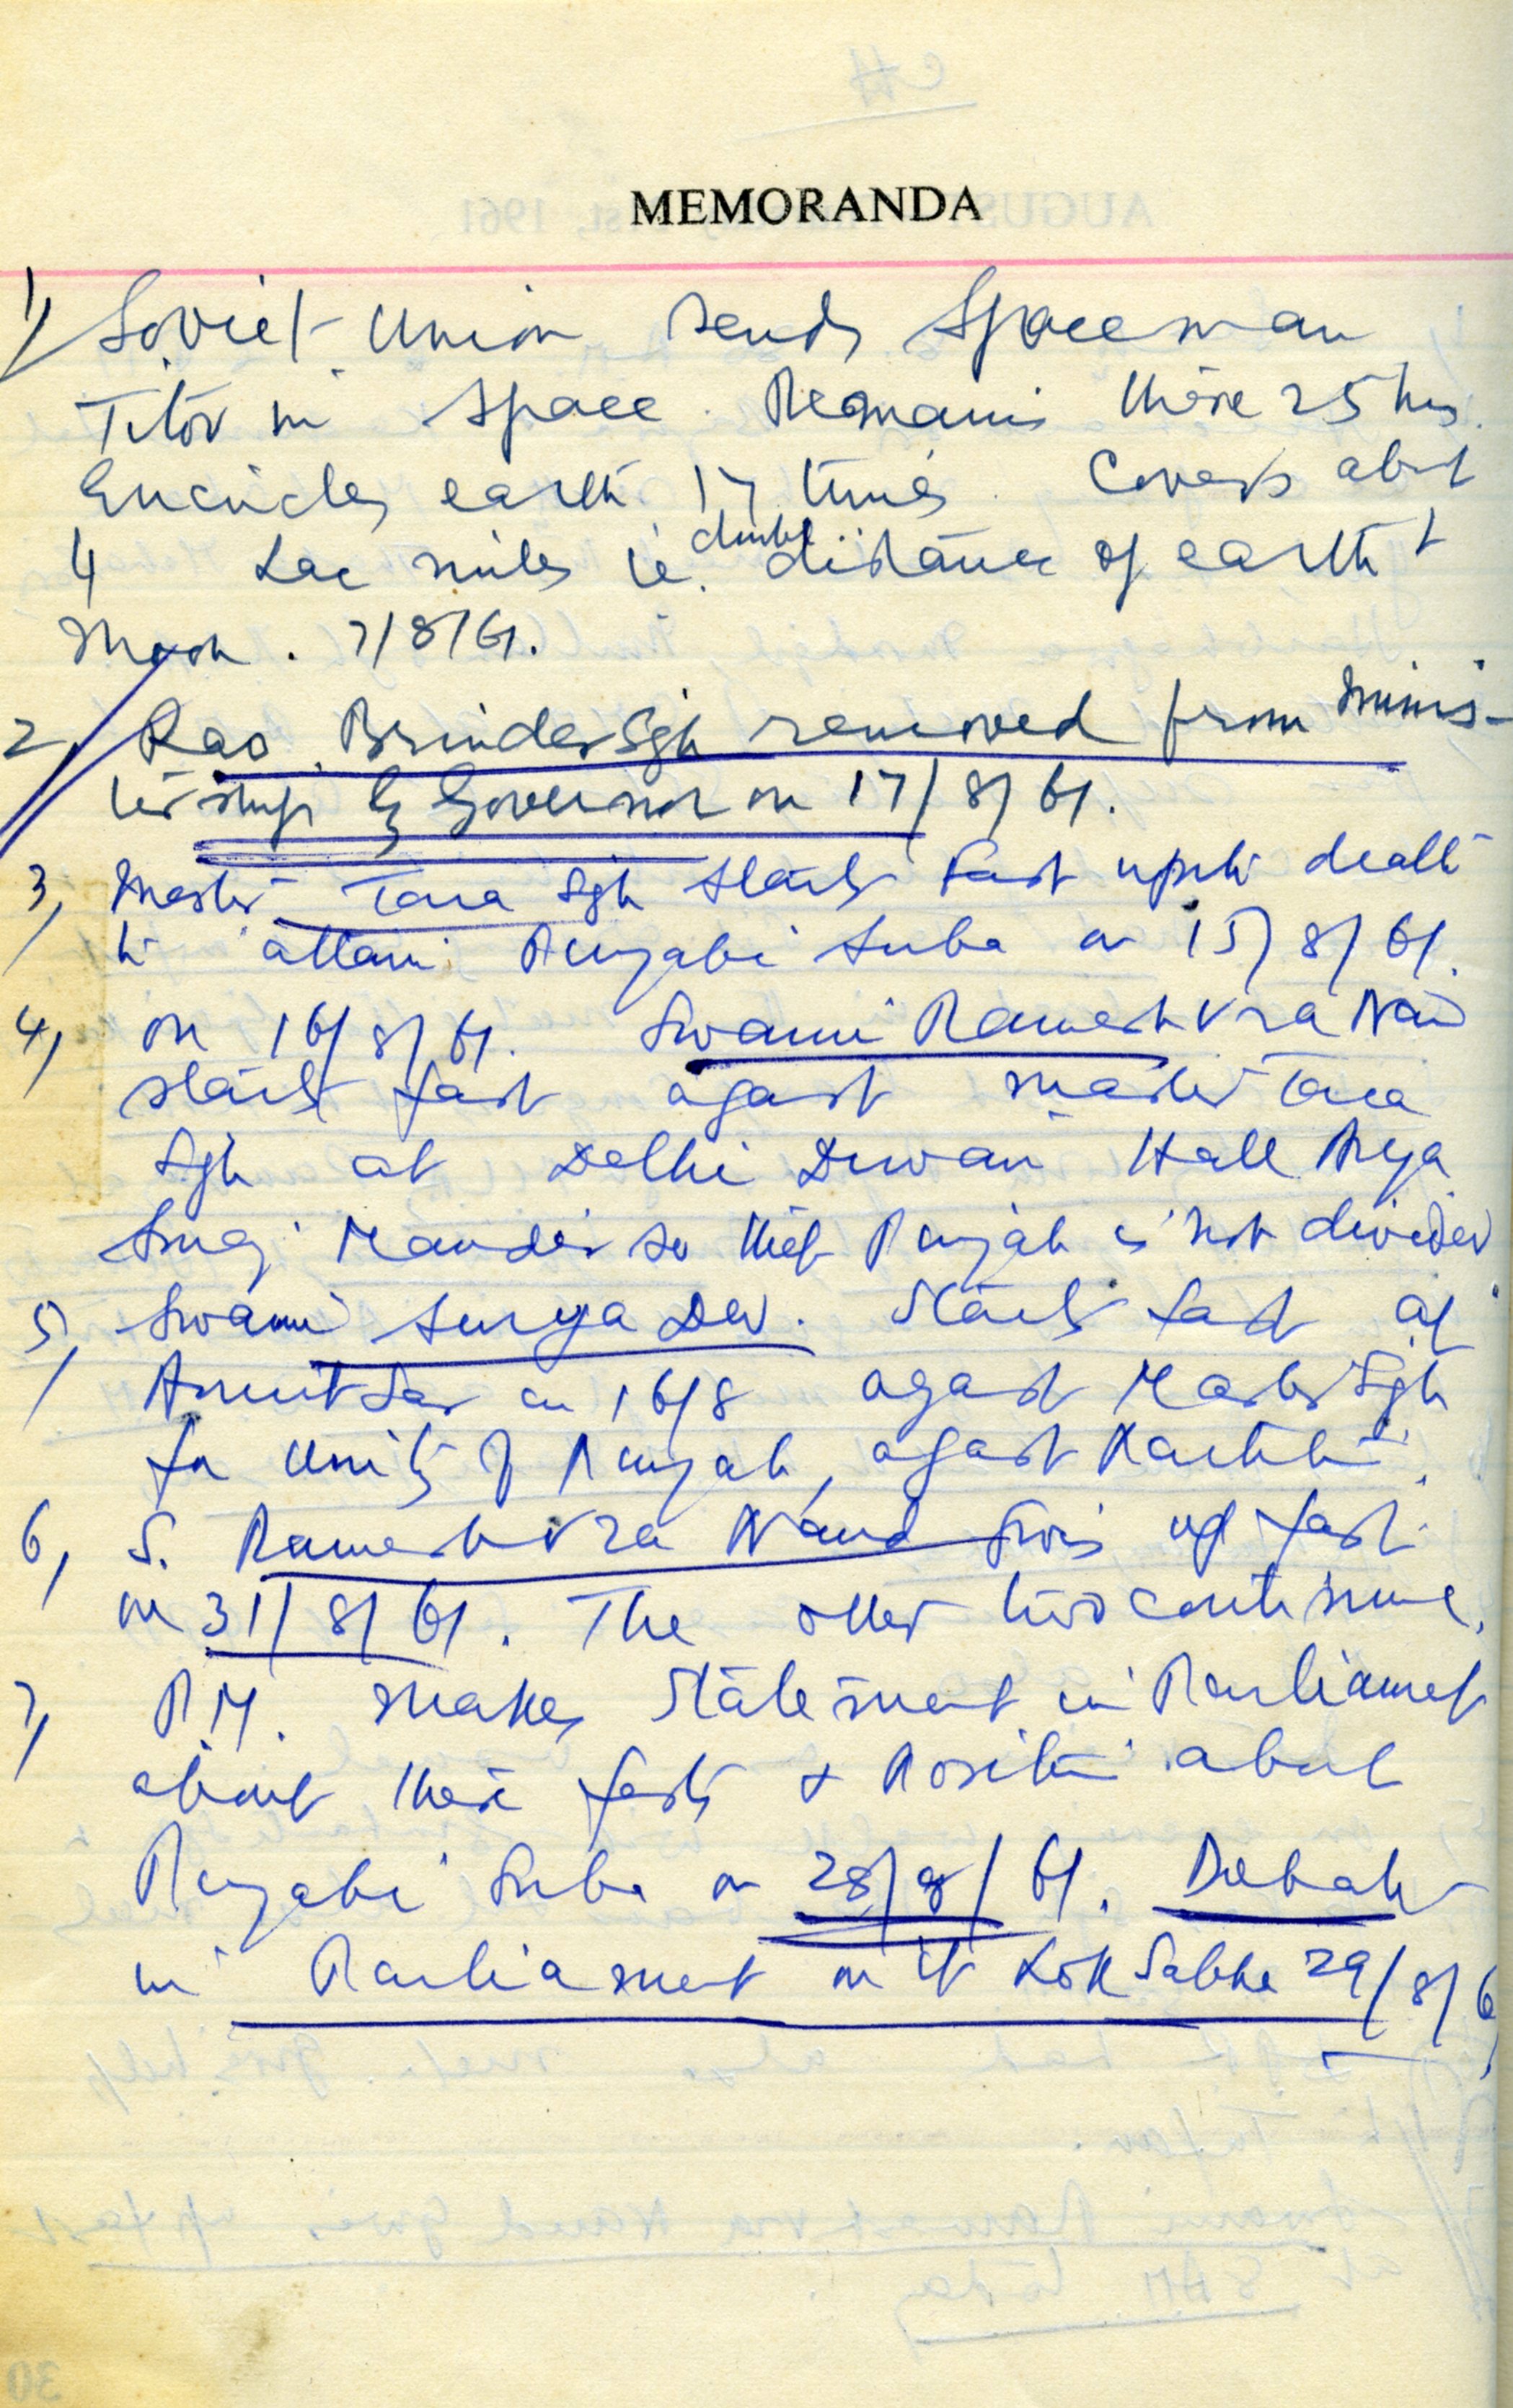 MEMORANDA
1) Soviet Union sends Spaceman
Titov in space. Remains there 25 hrs.
Encircles earth 17 times. Covers abut
4 Lac miles i.e. double distance of earth t
Moon. 7/8/61.
2, Rao Brinder Sgh removed from Minis-
tership by Governor on 17/8/61.
3, Master Tara Sgh starts Fast upto death
to attain Punjabi Suba on 15/8/61.
4, On 16/8/61. Swami Rameshvra Nand
starts fast agast Master Tara
Sgh at Delhi Dewan Hall Arya
Smaj Mandir so that Punjab is not divided
5, Swami Surya Dev. Starts fast at
Amritsar on 16/8 agast Master Sgh
for Unity of Punjab, agast
6, S. Rameshvra Nand Givis up fast
on 31/8/61. The other two continue.
7, P.M. makes Statement in Parliament
about these fasts & Position about
Punjabi Suba on 28/8/61. Debate
in Parliament on it Lok Sabha 29/8/6